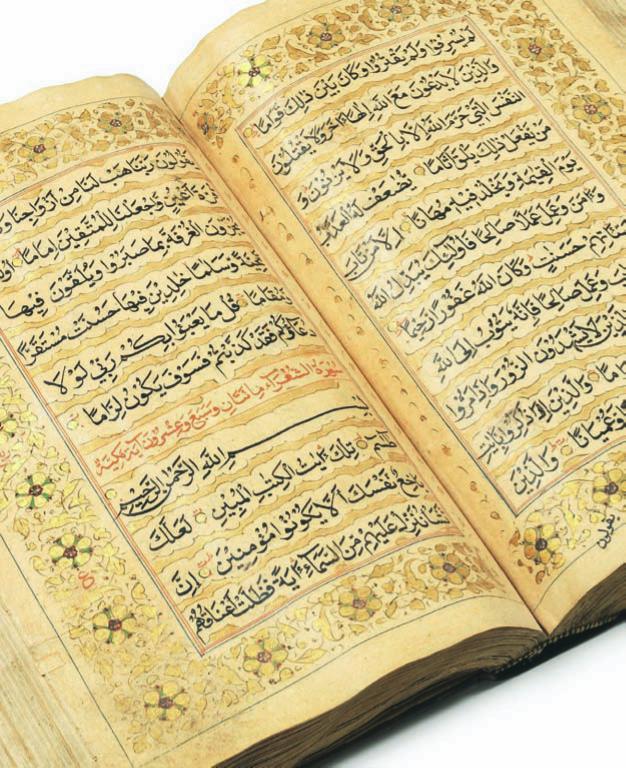 لَمْ يُسْرِفُوا وَلَمْ يَقْتُرُوا وَكَانَ بَيْنَ ذَلِكَ قَوَامًا
وَالَّذِينَ لَا يَدْعُونَ مَعَ اللَّهِ إِلَهًا آخَرَ وَلَا يَقْتُلُونَ
النَّفْسَ الَّتِي حَرَّمَ اللَّهُ إِلَّا بِالْحَقِّ وَلَا يَزْنُونَ وَ
مَنْ يَفْعَلْ ذَلِكَ يَلْقَ أَثَامًا يُضٰعَفْ لَهُ الْعَذَابُ
يَوْمَ الْقِيٰمَةِ وَيَخْلُدْ فِيهِ مُهَانًا إِلَّا مَنْ تَابَ
وَآمَنَ وَعَمِلَ عَمَلًا صَالِحًا فَأُولَئِكَ يُبَدِّلُ اللَّهُ
حَسَنٰتٍ وَكَانَ اللَّهُ غَفُورًا رَحِيمًا
تَابَ وَعَمِلَ صَالِحًا فَإِنَّهُ يَتُوبُ إِلَى اللَّهِ
وَالَّذِينَ لَا يَشْهَدُونَ الزُّورَ وَإِذَا مَرُّوا
وَالَّذِينَ إِذَا ذُكِّرُوا بِآيَاتِ
وَعُمْيَانًا وَالَّذِينَ
يقولون
يَقُولُونَ رَبَّنَا هَبْ لَنَا مِنْ أَزْوَاجِنَا
أَعْيُنٍ وَجَعَلْنَا لِلْمُتَّقِينَ إِمَامًا
يُجْزَوْنَ الْغُرْفَةَ بِمَا صَبَرُوا وَيُلَقَّوْنَ فِيهَا
وَسَلَامًا خٰلِدِينَ فِيهَا حَسُنَتْ مُسْتَقَرًّا
وَمُقَامًا قُلْ مَا يَعْبَؤُا بِكُمْ رَبِّي لَوْلَا
دُعَاؤُكُمْ فَقَدْ كَذَّبْتُمْ فَسَوْفَ يَكُونُ لِزَامًا
سورة الشعراء مائتان وسبع وعشرون آية مكية
بِسْمِ اللَّهِ الرَّحْمٰنِ الرَّحِيمِ
طسم تِلْكَ اٰيٰتُ الْكِتٰبِ الْمُبِينِ لَعَلَّكَ
بَاخِعٌ نَفْسَكَ أَلَّا يَكُونُوا مُؤْمِنِينَ إِنْ
نَشَأْ نُنَزِّلْ عَلَيْهِمْ مِنَ السَّمَاءِ اٰيَةً فَظَلَّتْ أَعْنَاقُهُمْ